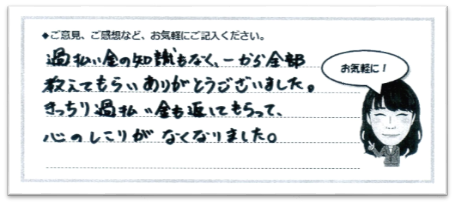 ◆ご意見、ご感想など、お気軽にご記入ください。
過払い金の知識もなく、一から全部
教えてもらいありがとうございました。
きっちり過払い金も返してもらって、
心のしこりがなくなりました。
お気軽に!